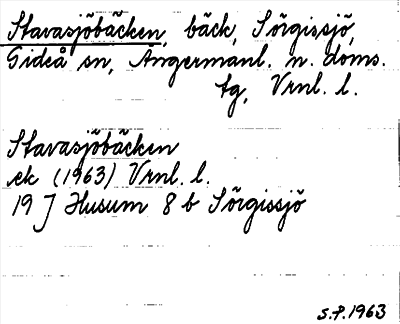 Stavasjöbäcken, bäck, Sörgissjö,
Gideå sn, Ångermanl. n. doms.
tg, Vrnl. l.
Stavasjöbäcken
ek (1963) Vrnl. l.
19 J Husum 8 b Sörgissjö
S.P. 1963